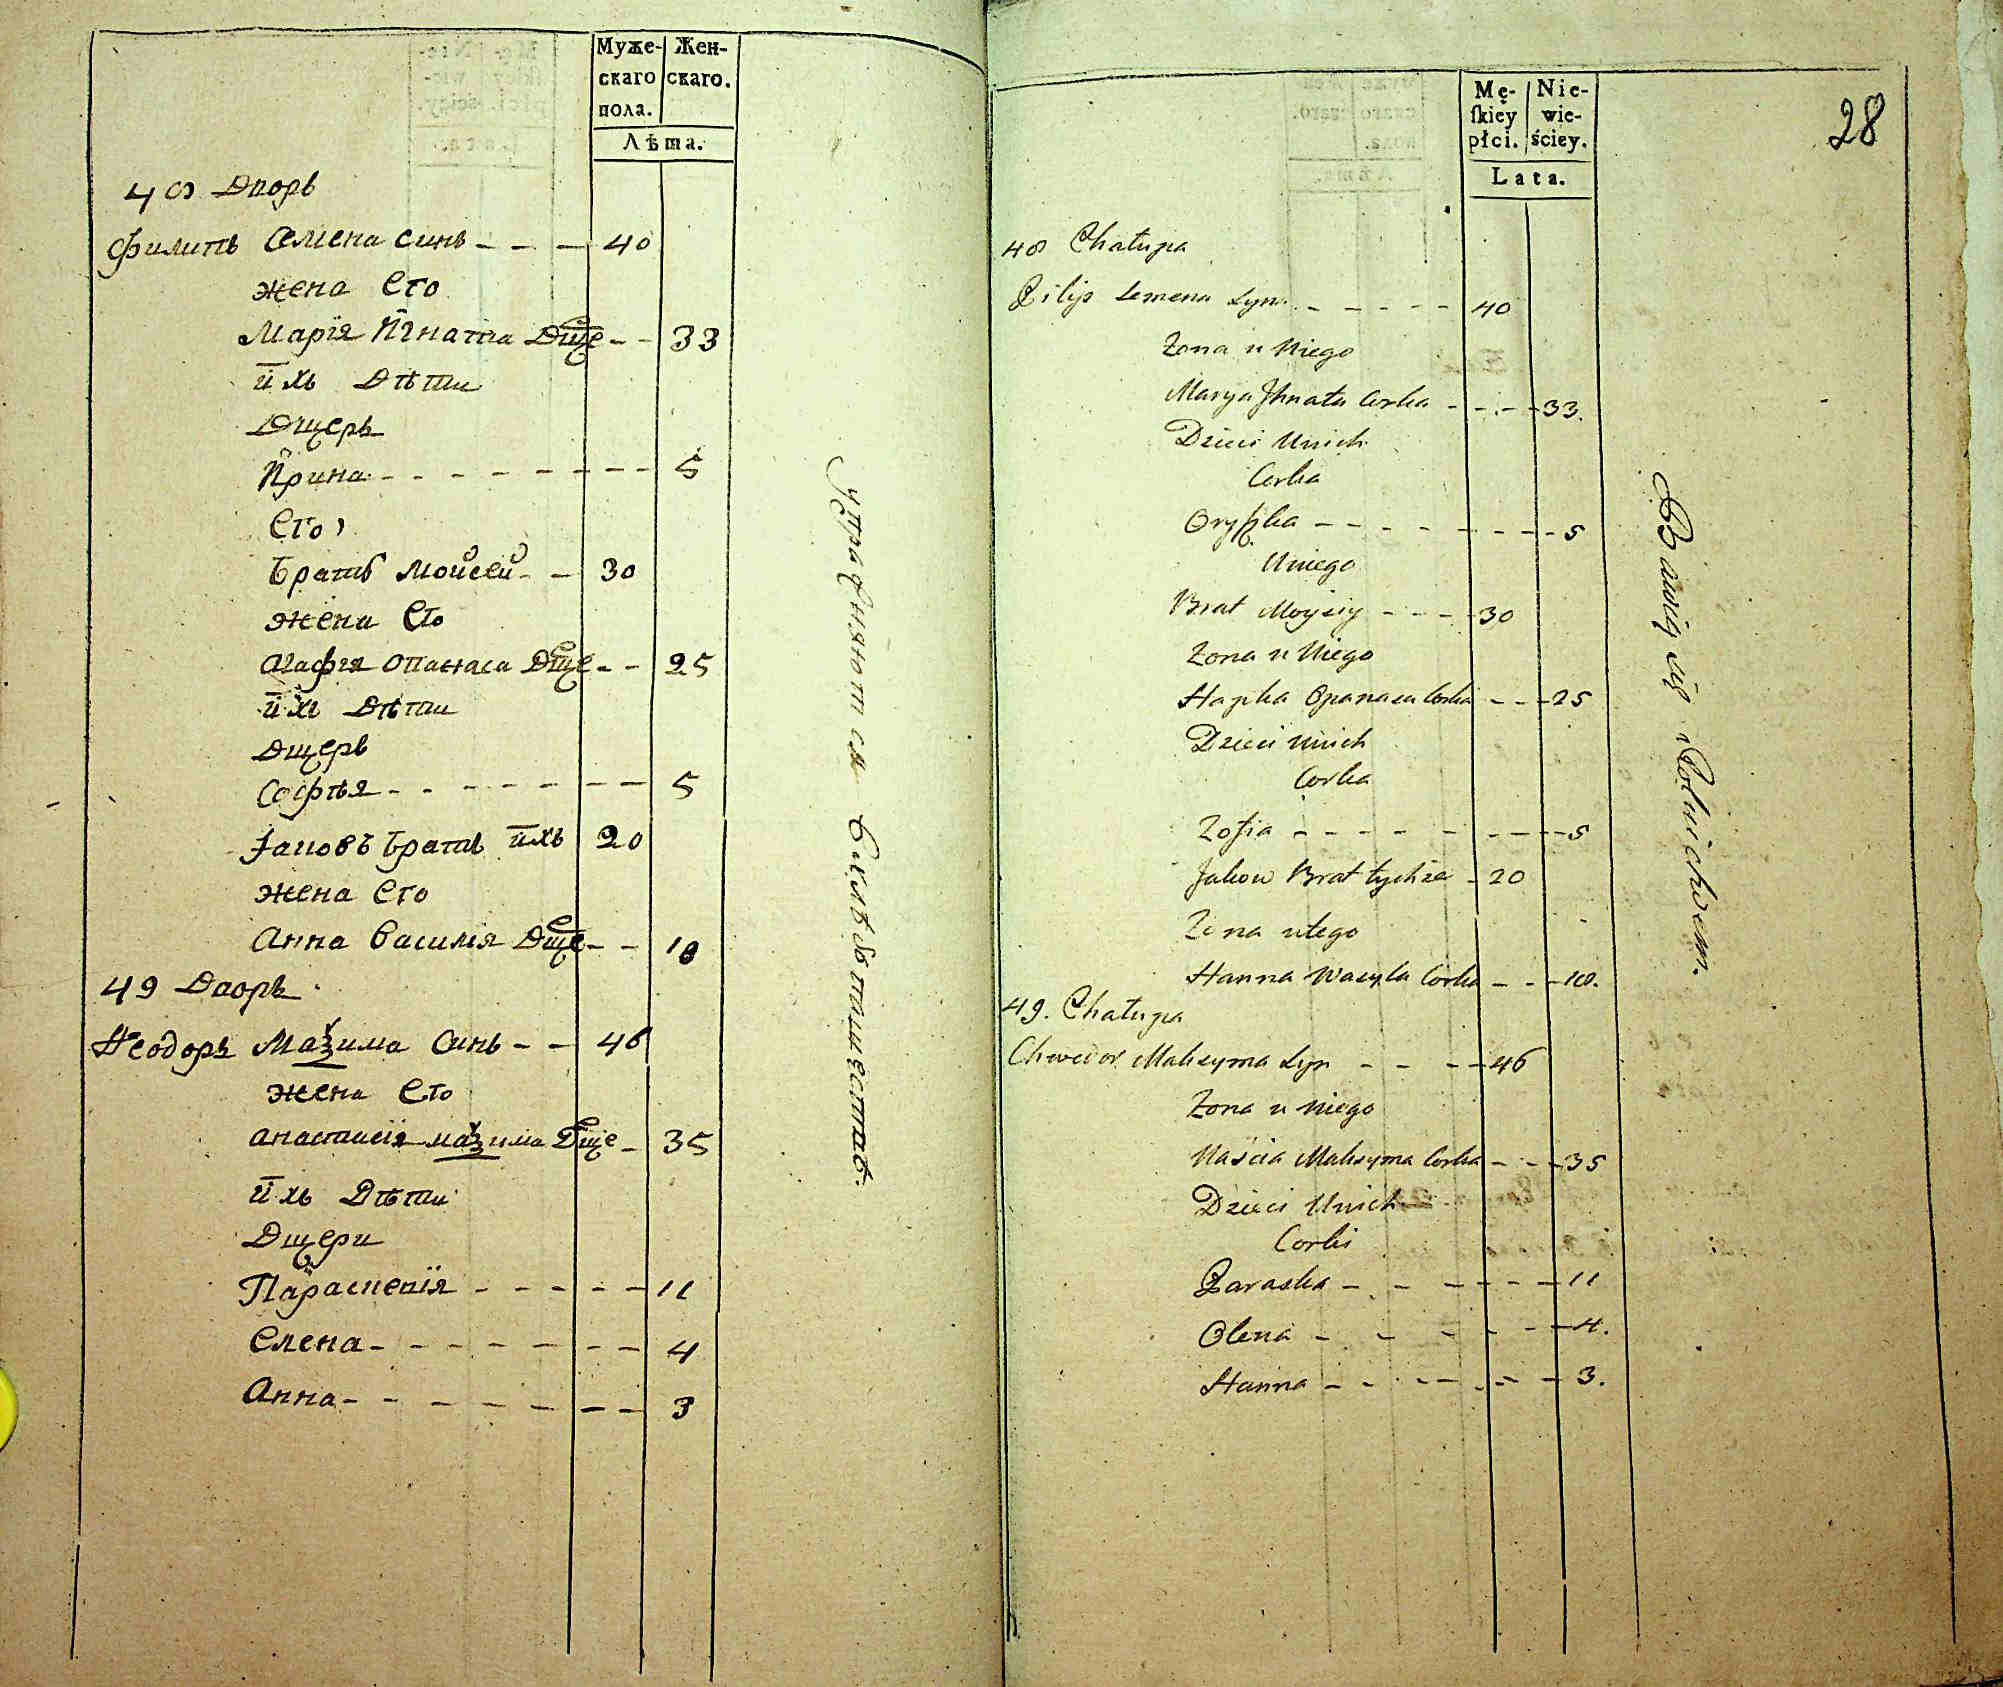 Муже-
скаго
пола.
Жен-
скаго.
Лѣта.
48 Дворъ
Филипъ Семена синъ - - - 40
жена Его
Марїя Йгната Дще - - 33
ихъ Дѣти
Дщерь
Йрина - - - - - - - - 5
Его
Братъ Мойсей - - 30
жена Его
Агафїя Опанаса Дще - - 25
ихъ Дѣти
Дщерь
Софѣя - - - - - - - 5
Іаковъ Братъ ихъ 20
жена Его
Анна Василїя Дще - - 18
49 Дворъ
Ѳеодоръ Маѯима Синъ - - 46
жена Его
Анастасїя маѯима Дще - 35
ихъ Дѣти
Дщери
Параскевїя - - - - - 11
Елена - - - - - - - 4
Анна - - - - - - - 3
упражняются вхлѣбопашествѣ.
28
Mę-
ſkiey
płci.
Nie-
wie-
ściey.
Lata.
48 Chałupa
Pilip Semena Syn - - - - - 40
Zona u Niego
Marya Jhnata Corka - - - - 33.
Dzieci Unich
Corka
Oryſzka - - - - - - - - 5
Uniego
Brat Moysiy - - - - 30
Zona u Niego
Hapka Opanasa Corka - - - 25
Dzieci Unich
Corka
Zofia - - - - - - - - 5
Jakow Brat tychze - 20
Zona utego
Hanna Wasyla Corka - - - 18.
49. Chałupa
Chwedor Maksyma Syn - - - - 46
Zona u Niego
Naścia Maksyma Corka - - - 35
Dzieci Unich
Corki
Paraska - - - - - - - 11
Olena - - - - - - 4.
Hanna - - - - - - - 3.
Bawią się Rolnictwem.